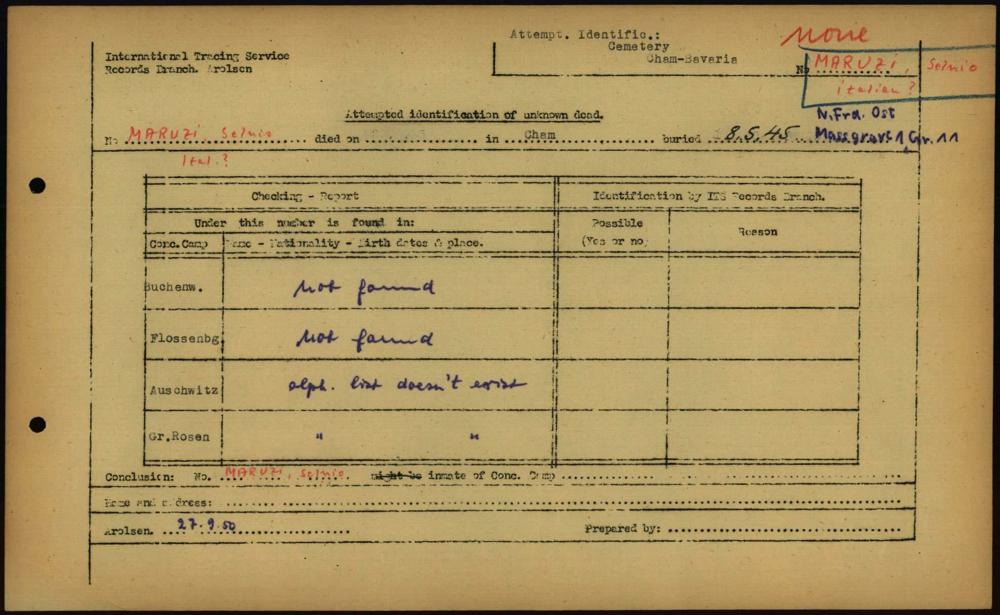 Attempt. Identific.:
Cemetery
Cham-Bavaria
None
International Tracing Service
Records Branch. Arolsen
No MARUZI, Selnio
italian ?
Attempted identification of unknown dead.
N.Frd. Ost
No MARUZI, Selnio died on in Cham buried 8.5.45 Massgrave 1 Gr. 11
Ital.?
Checking - Report
Identification by ITS Records Branch.
Under this number is found in:
Possible
(Yes or no)
Reason
Conc.Camp Name - Nationality - Birth dates & place.
Buchenw. not found
Flossenbg. not found
Auschwitz alph. list doesn't exist
Gr.Rosen " "
Conclusion: No. MARUZI, Selnio might be inmate of Conc. Camp
Home and address:
Arolsen. 27.9.50 Prepared by: